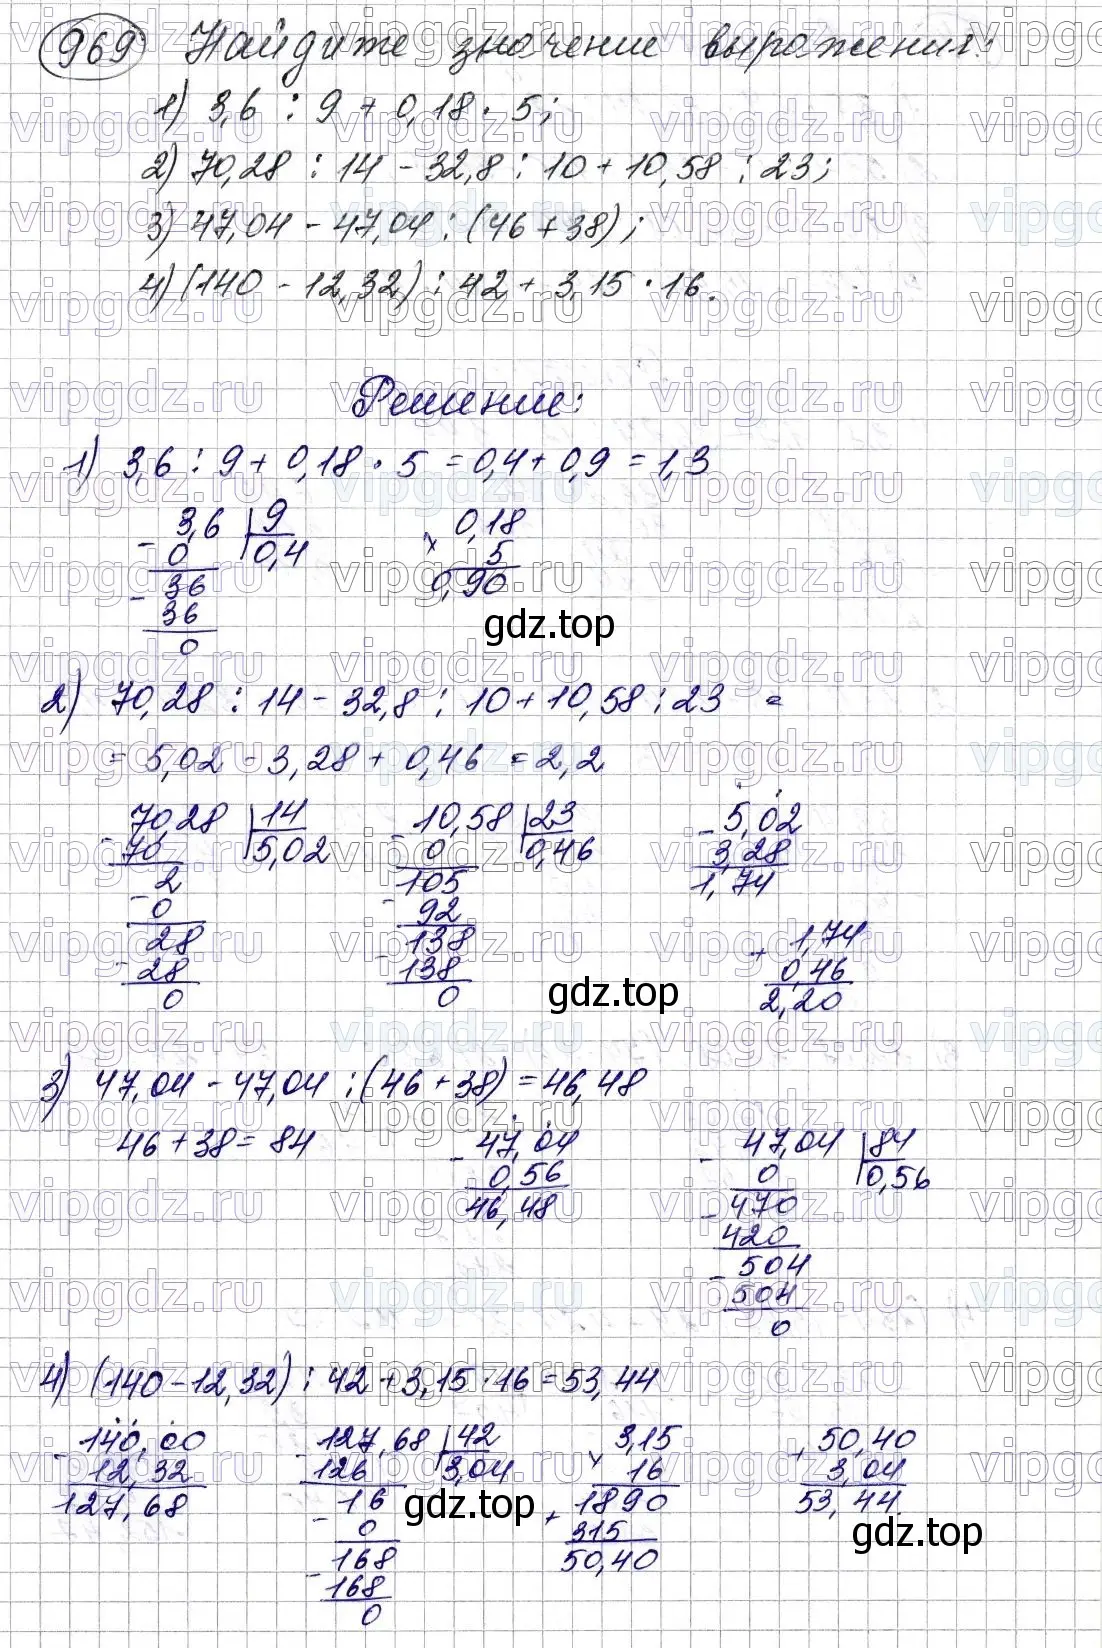 969 Найдите значение выражения:
1) 3,6 : 9 + 0,18 · 5;
2) 70,28 : 14 - 32,8 : 10 + 10,58 : 23;
3) 47,04 - 47,04 : (46 + 38);
4) (140 - 12,32) : 42 + 3,15 · 16.
Решение:
1) 3,6 : 9 + 0,18 · 5 = 0,4 + 0,9 = 1,3
- 3,6 9 0,18
0 0,4 × 5
- 36 0,90
36
0
gdz.top
2) 70,28 : 14 - 32,8 : 10 + 10,58 : 23 =
= 5,02 - 3,28 + 0,46 = 2,2
- 70,28 14 - 10,58 23 - 5,02
70 5,02 0 0,46 3,28
- 2 - 105 1,74
0 92
28 - 138 + 1,74
- 28 138 0,46
0 0 2,20
gdz.top
3) 47,04 - 47,04 : (46 + 38) = 46,48
46 + 38 = 84 - 47,04 - 47,04 84
0,56 0 0,56
46,48 - 470
420
- 504
504
0
4) (140 - 12,32) : 42 + 3,15 · 16 = 53,44
- 140,00 - 127,68 42 × 3,15 + 50,40
12,32 126 3,04 16 3,04
127,68 - 16 + 1890 53,44
0 315
168 50,40
- 168
0
gdz.top
gdz.top
vipgdz.ru